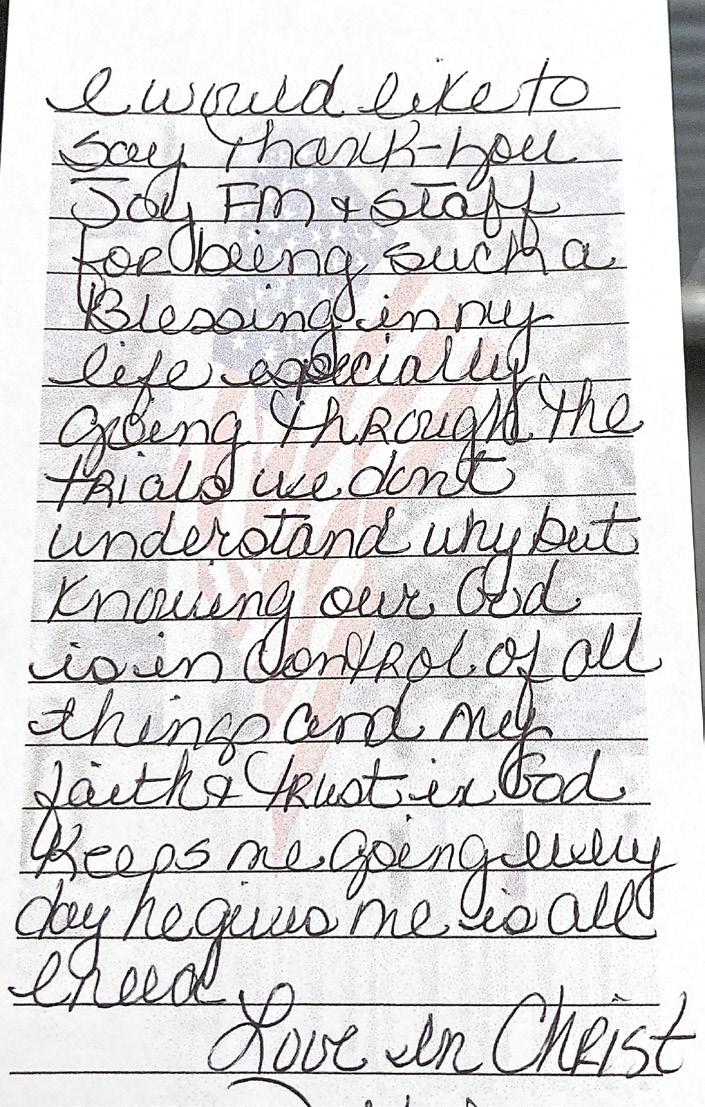 I would like to
say Thank-you
Joy FM & Staff
for being such a
Blessing in my
life especially
going through the
trials we don't
understand why but
Knowing our God
is in Control of all
things and my
faith & Trust in God
Keeps me going every
day he gives me is all
I need.
Love In Christ